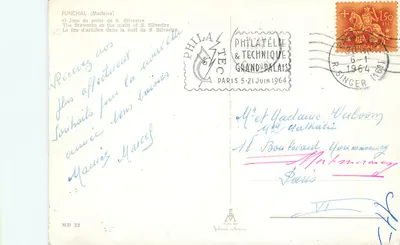 FUNCHAL (Madeira)
O fogo da noite de S. Silvestre
The fireworks at the night of S. Silvestre
Le feu d'artifice dans la nuit de S. Silvestre
PHILATEC
PHILATÉLIE
& TECHNIQUE
GRAND-PALAIS
PARIS 5-21 JUIN 1964
1$50
6-1
1964
Recevez nos
plus affectueux
souhaits pour la nouvelle
année bons baisers
Marcel
Mr et Madame
Mlle Nathalie
16 Boulevard
Montmorency
Paris